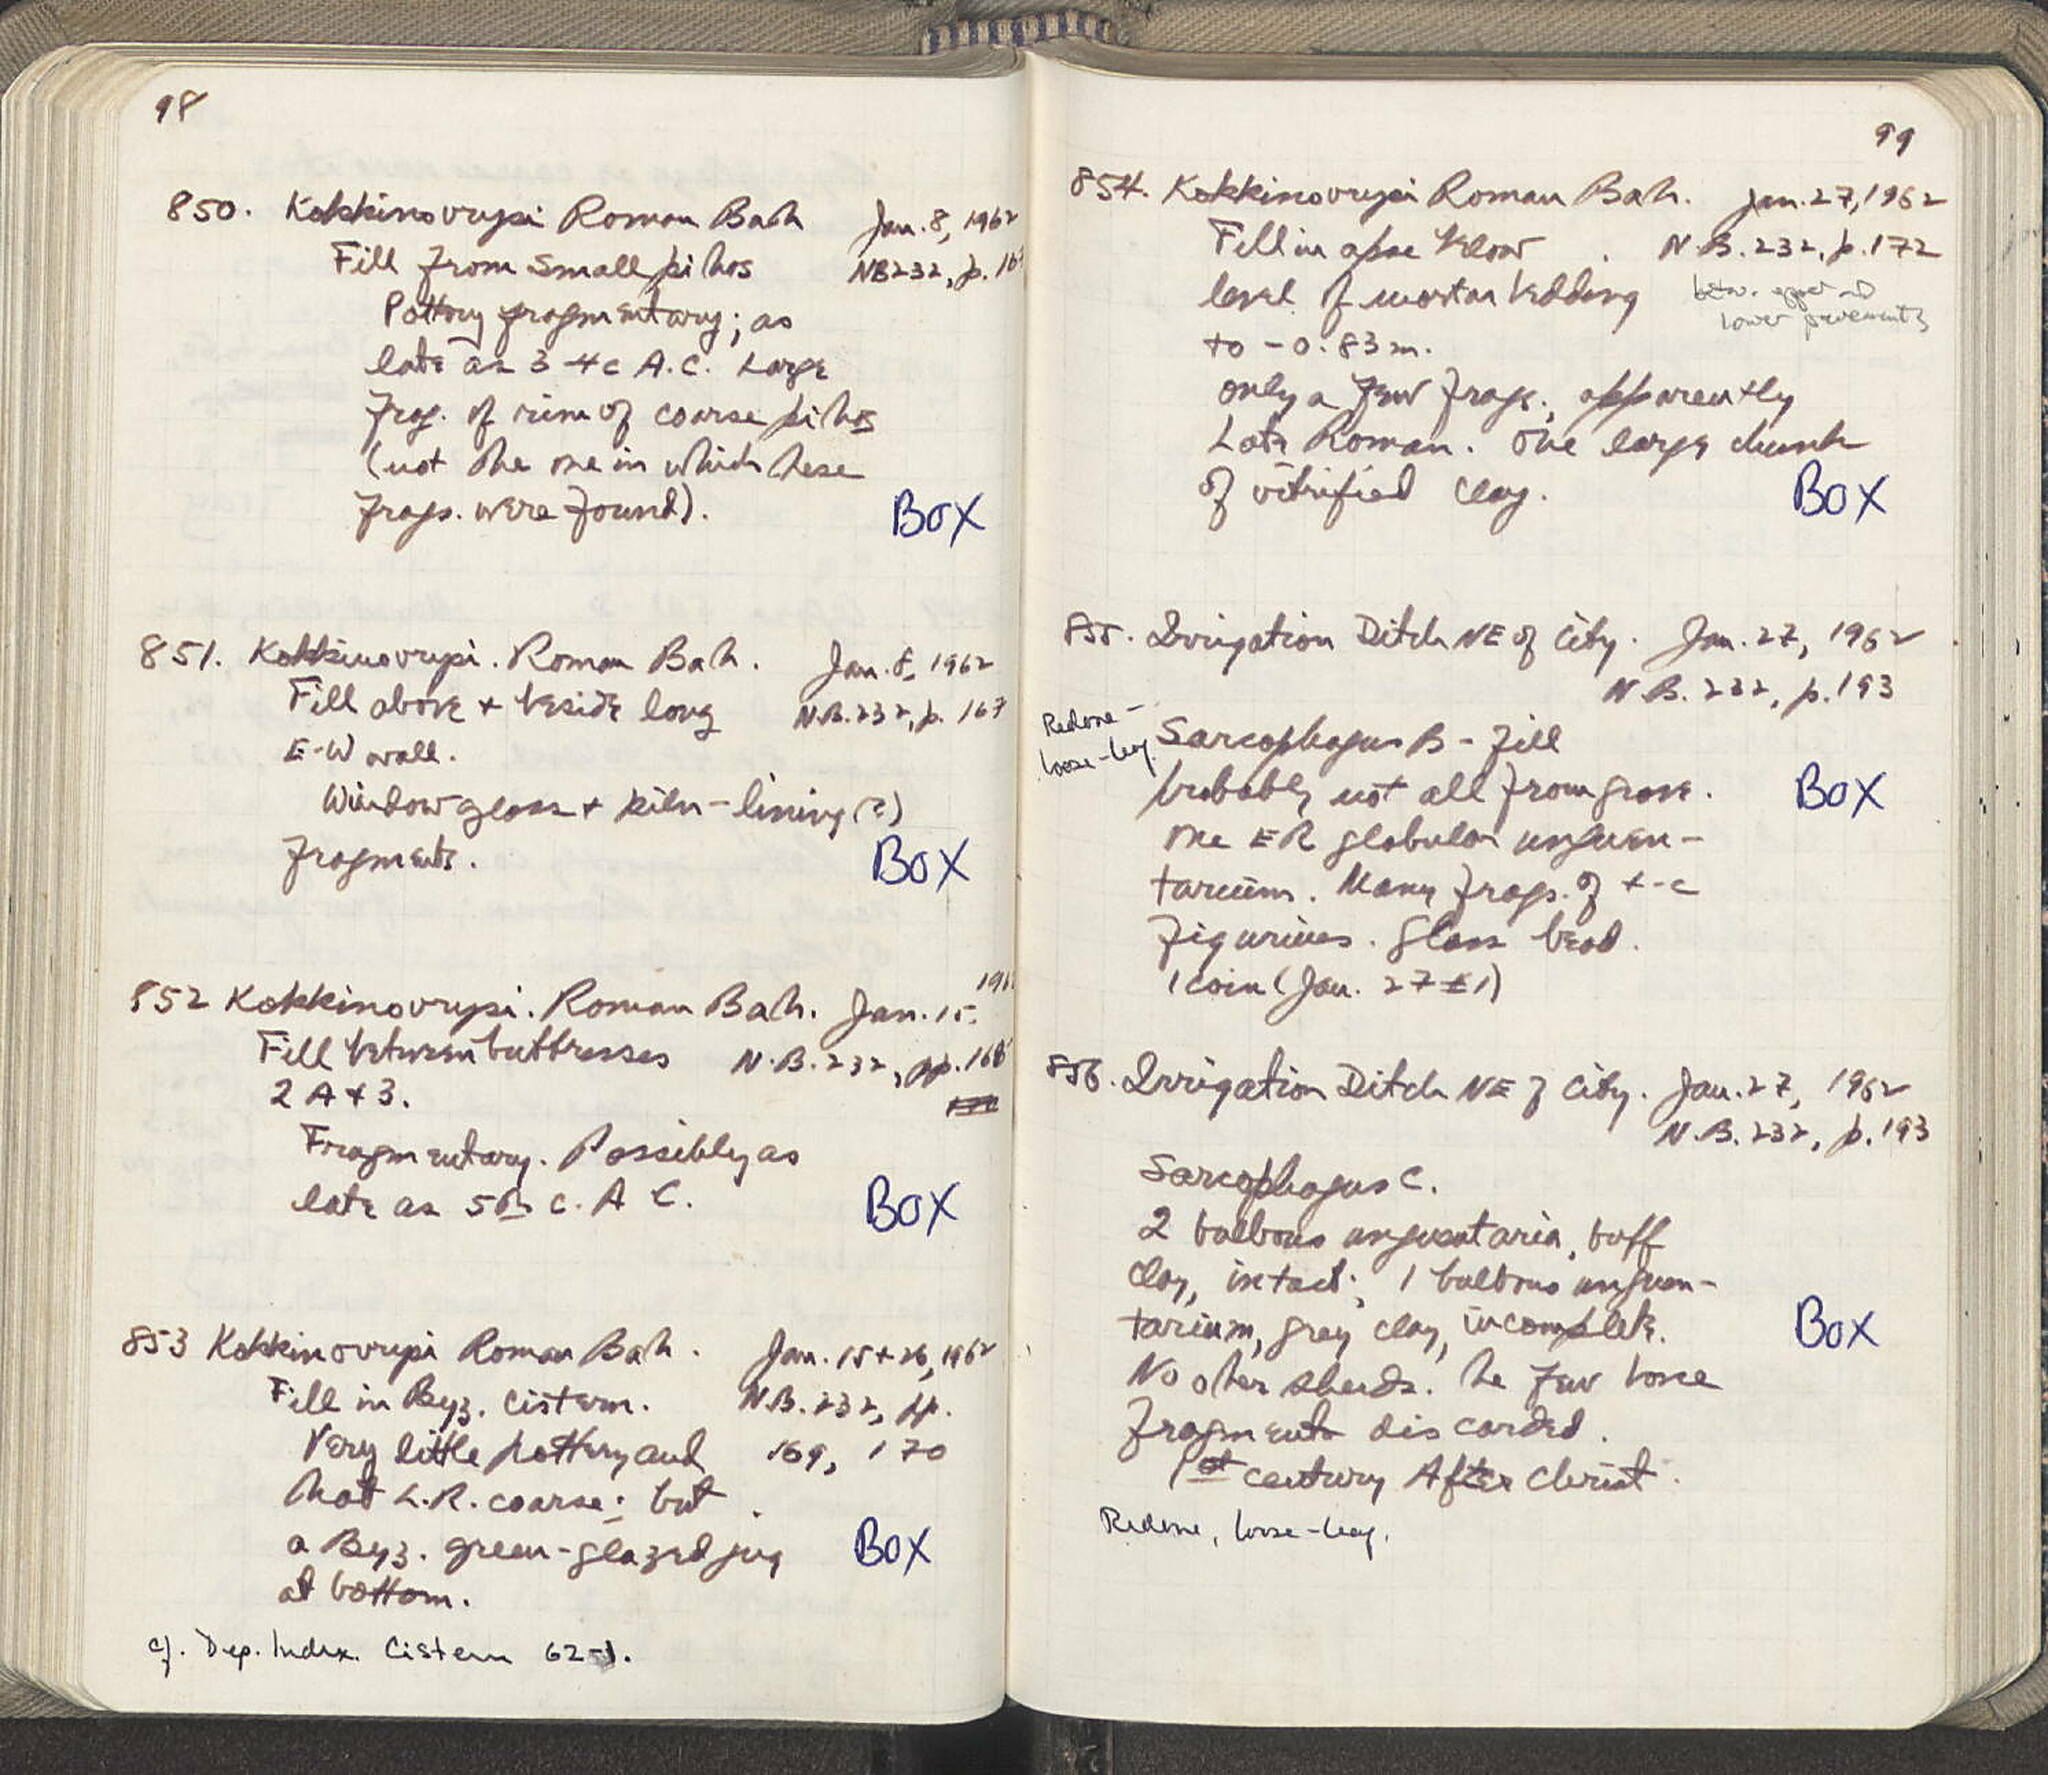 98
850. Kokkinovrysi Roman Bath Jan. 8, 1962
Fill from small pithos NB232, p. 167
Pottery fragmentary; as
late as 3-4c A.C. Large
frag. of rim of coarse pithos
(not the one in which these
frags. were found). BOX
851. Kokkinovrysi. Roman Bath. Jan. 8, 1962
Fill above + beside long N.B. 232, p. 167
E-W wall.
Window glass + kiln-lining (?)
fragments. BOX
852 Kokkinovrysi. Roman Bath. Jan. 15,
Fill between buttresses N.B. 232, pp. 168
2A + 3.
Fragmentary. Possibly as
late as 5th c. A C. BOX
853 Kokkinovrysi Roman Bath. Jan. 15+26, 1962
Fill in Byz. cistern. N.B. 232, pp.
Very little pottery and 169, 170
that L.R. coarse; but
a Byz. green-glazed jug BOX
at bottom.
cf. Dep. Index. Cistern 62-1.
99
854. Kokkinovrysi Roman Bath. Jan. 27, 1962
Fill in apse below N.B. 232, p. 172
level of mortar bedding betw. upper and
lower pavements
to -0.83m.
only a few frags., apparently
Late Roman. One large chunk
of vitrified clay. BOX
855. Irrigation Ditch NE of City. Jan. 27, 1962
N.B. 232, p. 193
Redone -
loose-leaf
Sarcophagus B - fill
probably not all from grave. BOX
One ER globular unguen-
tarium. Many frags. of t-c
figurines. Glass bead.
1 coin (Jan. 27 #1)
856. Irrigation Ditch NE of City. Jan. 27, 1962
N.B. 232, p. 193
Sarcophagus C.
2 bulbous unguentaria, buff
clay, intact; 1 bulbous unguen-
tarium, grey clay, incomplete. BOX
No other sherds. The few bone
fragments discarded.
1st century After Christ.
Redone, loose-leaf.